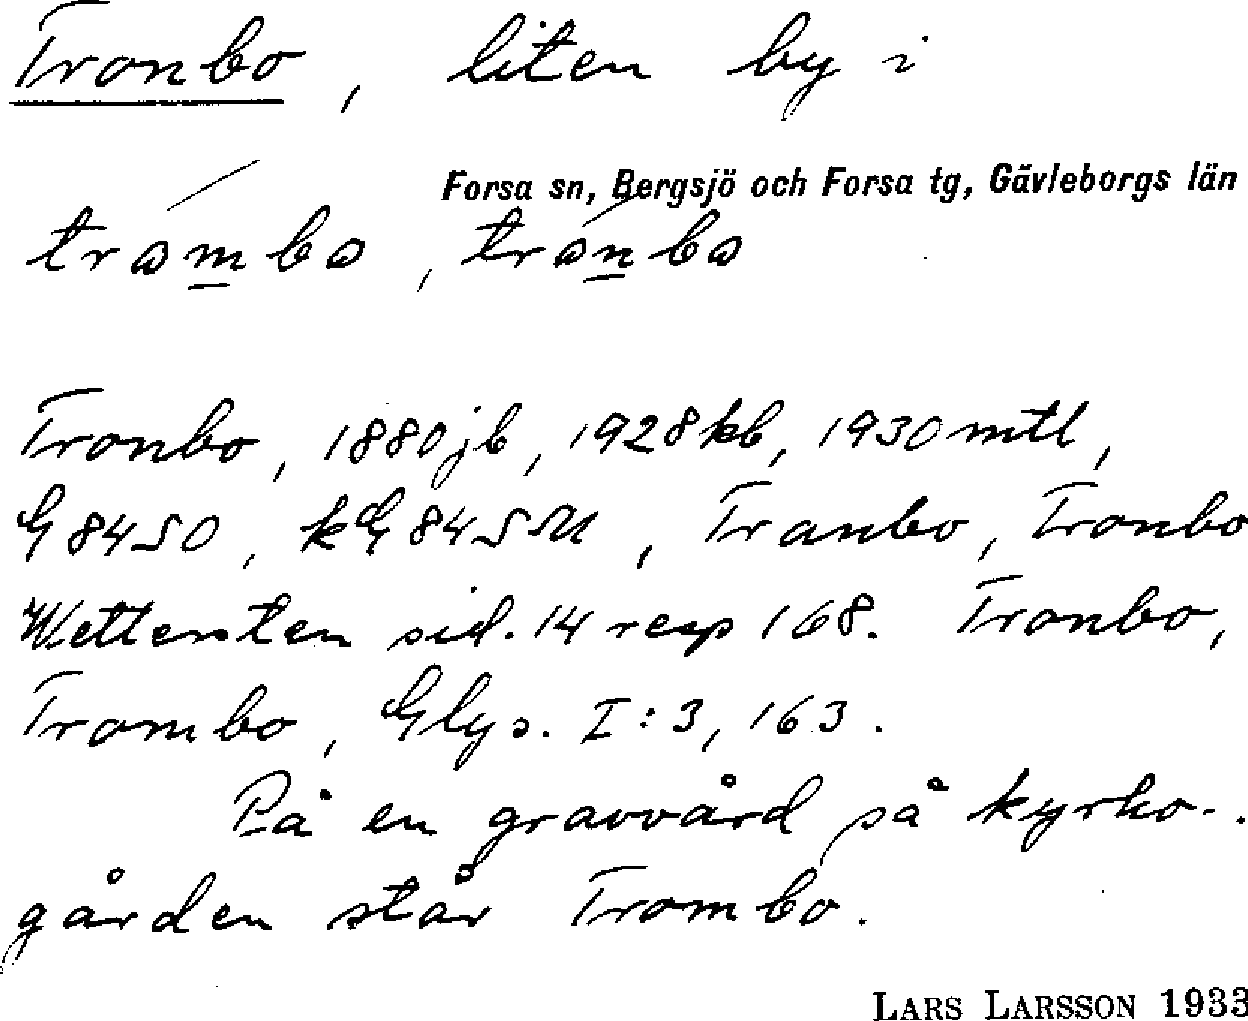 Tronbo, liten by i
Forsa sn, Bergsjö och Forsa tg, Gävleborgs län
trombo, tronbo
Tronbo, 1880 jb, 1928 kb, 1930 mtl,
G 84 SO, kG 84 S M, Tranbo, Tronbo
Wettersten sid. 14 resp 168. Tronbo,
Trombo, Glys. I:3, 163.
På en gravvård på kyrko-
gården står Trombo.
LARS LARSSON 1933